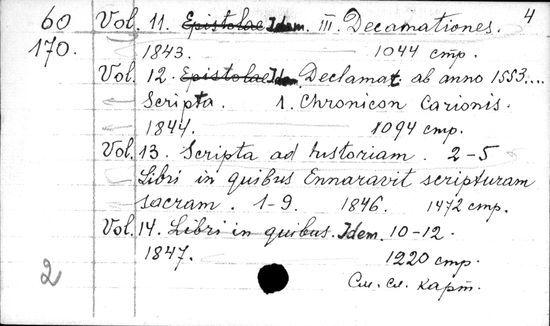 4
60 Vol. 11. Epistolae Idem. III. Decamationes.
170. 1843. 1044 стр.
Vol. 12. Epistolae Idem Declamat. ab anno 1553....
Scripta. 1. Chronicon Carionis.
1844. 1094 стр.
Vol. 13. Scripta ad historiam. 2-5
Libri in quibus Ennaravit scripturam
sacram. 1-9. 1846. 1472 стр.
Vol. 14. Libri in quibus. Idem. 10-12.
1847. 1220 стр.
2 См. сл. карт.